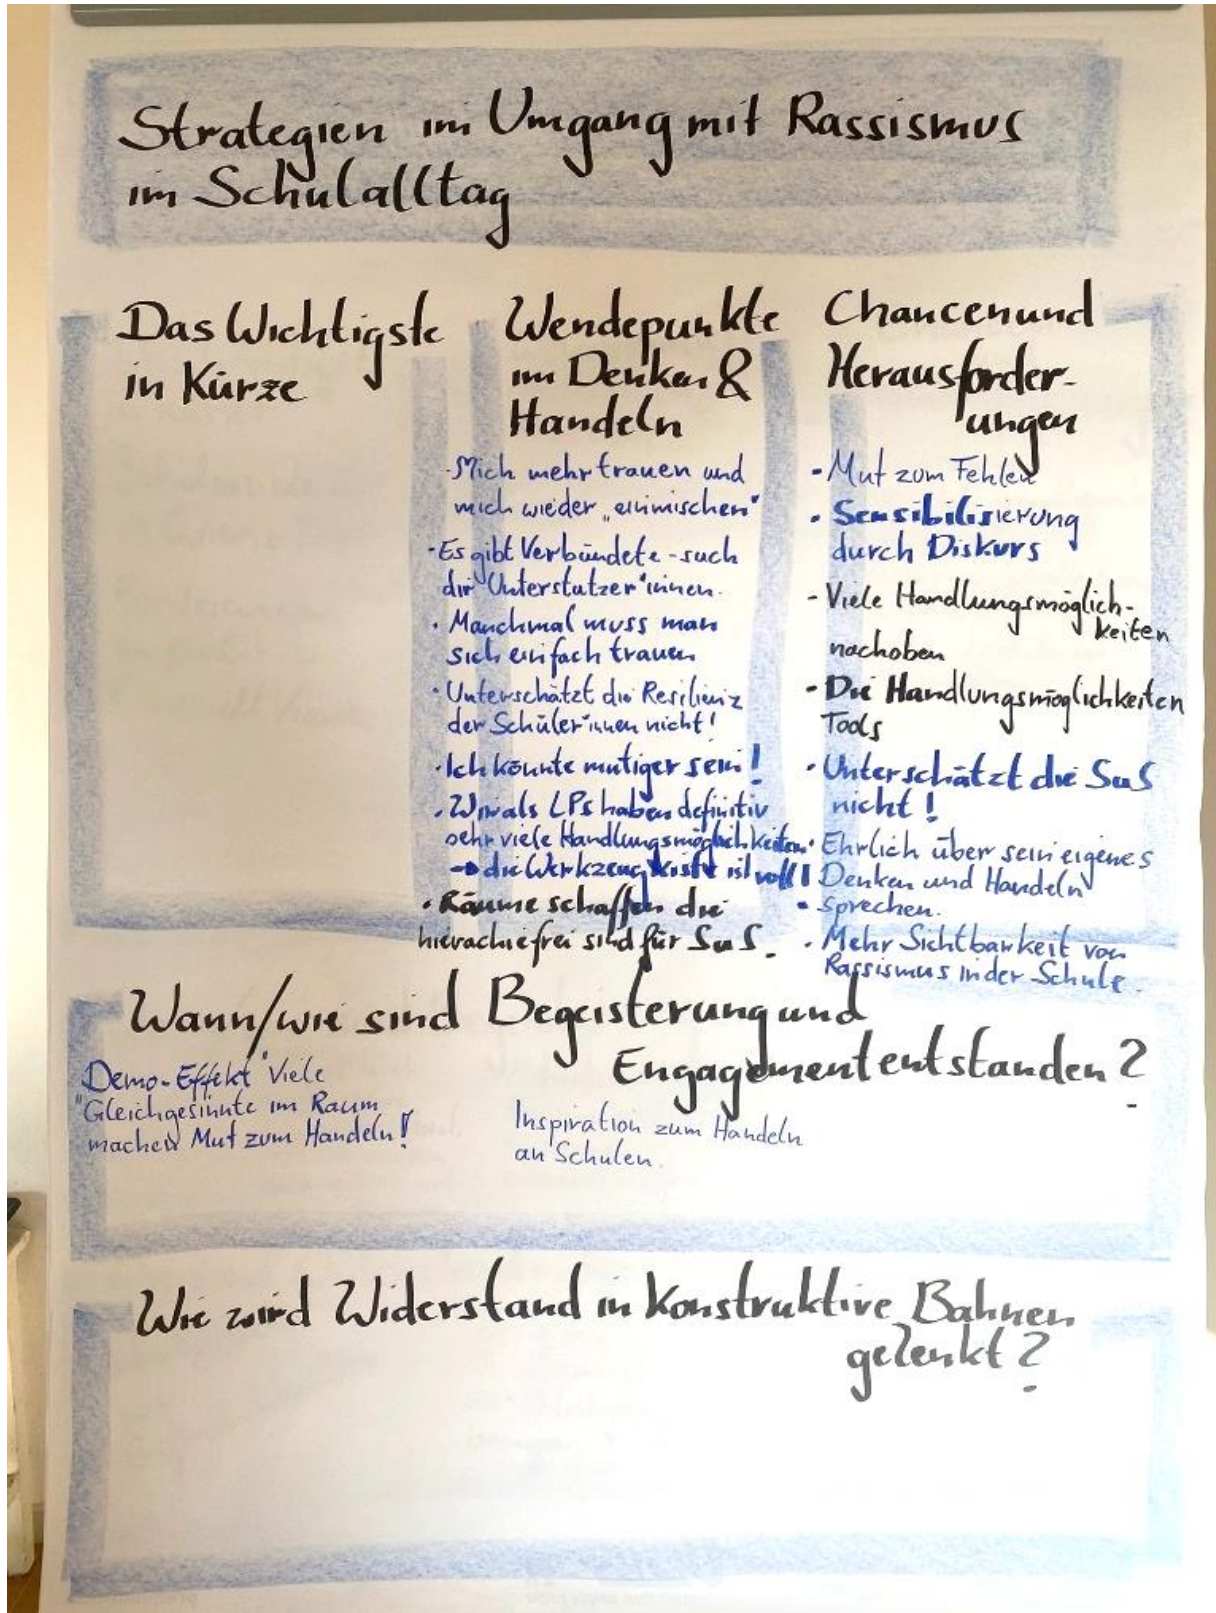 Strategien im Umgang mit Rassismus
im Schulalltag
Das Wichtigste
in Kürze
Wendepunkte
im Denken &
Handeln
- Mich mehr trauen und
mich wieder „einmischen"
- Es gibt Verbündete - such
dir Unterstützer*innen.
• Manchmal muss man
sich einfach trauen
• Unterschätzt die Resilienz
der Schüler*innen nicht!
• Ich könnte mutiger sein!
• Wir als LPs haben definitiv
sehr viele Handlungsmöglichkeiten
→ die Werkzeugkiste ist voll!
• Räume schaffen die
hierachiefrei sind für SuS.
Chancen und
Herausforder-
ungen
- Mut zum Fehler
• Sensibilisierung
durch Diskurs
- Viele Handlungsmöglich-
keiten
nachoben
- Die Handlungsmöglichkeiten
Tools
• Unterschätzt die SuS
nicht!
• Ehrlich über sein eigenes
Denken und Handeln
• sprechen.
• Mehr Sichtbarkeit von
Rassismus in der Schule.
Wann/wie sind Begeisterung und
Engagement entstanden?
Demo-Effekt" Viele
"Gleichgesinnte im Raum
machen Mut zum Handeln!
Inspiration zum Handeln
an Schulen.
Wie wird Widerstand in konstruktive Bahnen
gelenkt?